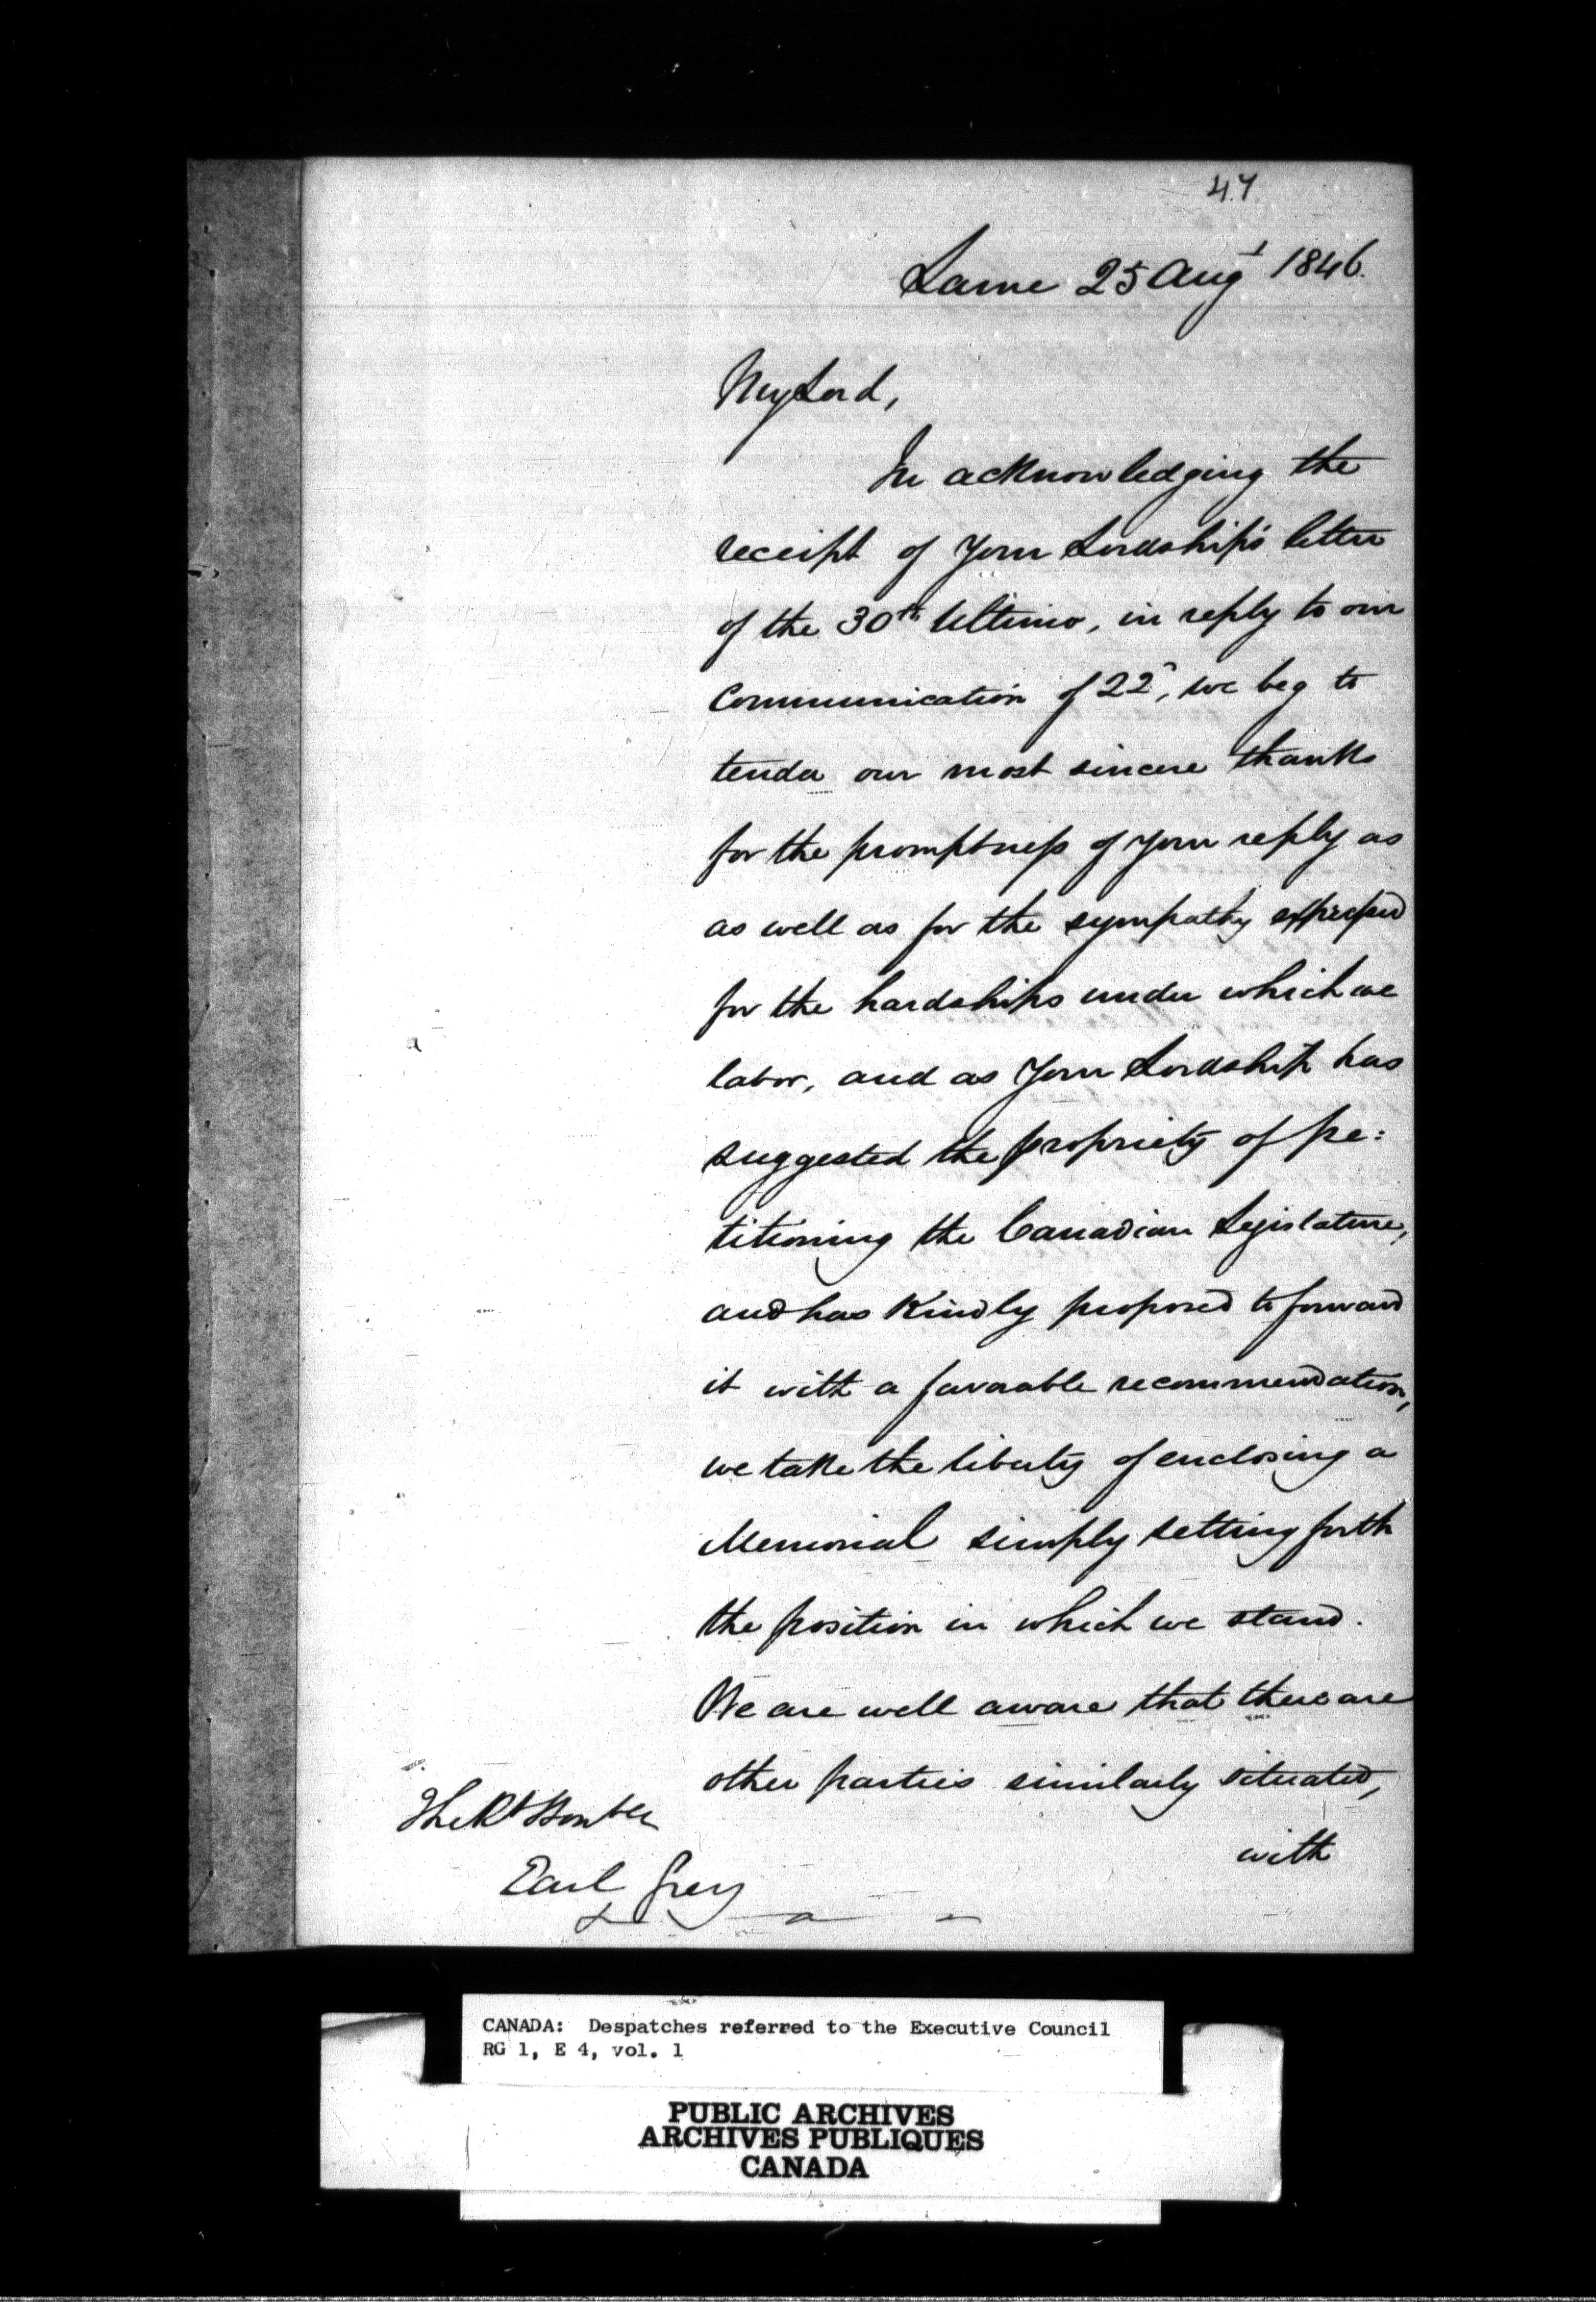 47
Larne 25 Augt 1846.
My Lord,
In acknowledging the
receipt of Your Lordship's letter
of the 30th Ultimo, in reply to our
Communication of 22d, we beg to
tender our most sincere thanks
for the promptness of your reply as
as well as for the sympathy expressed
for the hardships under which we
labor, and as Your Lordship has
suggested the propriety of pe=
titioning the Canadian Legislature,
and has Kindly proposed to forward
it with a favorable recommendation,
we take the liberty of enclosing a
Memorial simply setting forth
the position in which we stand.
We are well aware that there are
other parties similarly situated,
with
The Rt Honble
Earl Grey
CANADA: Despatches referred to the Executive Council
RG 1, E 4, vol. 1
PUBLIC ARCHIVES
ARCHIVES PUBLIQUES
CANADA